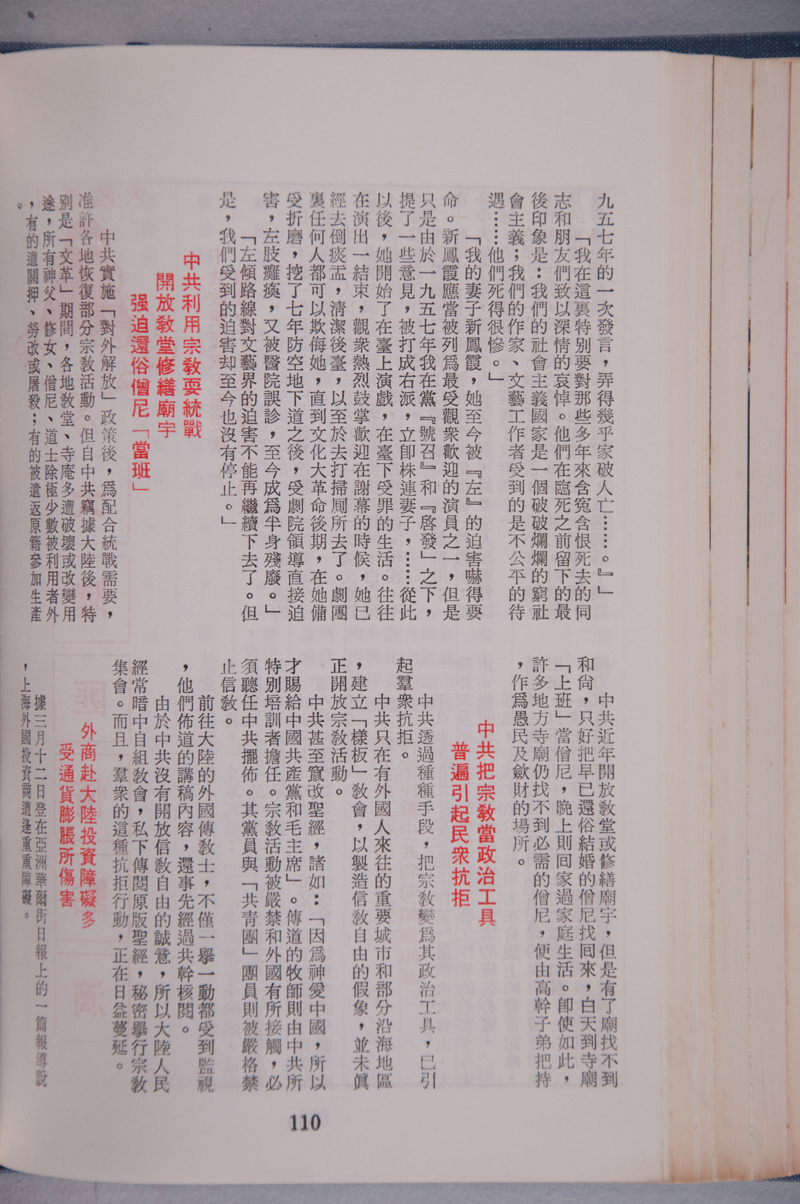 九五七年的一次發言，弄得幾乎家破人亡……。』」
「我在這裏特別要對那些多年來含寃含恨死去的同
志和朋友們致以深情的哀悼。他們在臨死之前留下的最
後印象是：我們的社會主義國家是一個破破爛爛的窮社
會主義；我們的作家、文藝工作者受到的是不公平的待
遇……他們死得很慘。」
「我的妻子新鳳霞，她至今被『左』的迫害嚇得要
命。新鳳霞應當被列爲最受觀衆歡迎的演員之一，但是
只是由於一九五七年我在黨『號召』和『啓發』之下，
提了一些意見，被打成右派，立卽株連妻子，……從此
以後，她開始了在臺上演戲，在臺下受罪的生活。往往
在演出一結束，觀衆熱烈鼓掌歡迎在謝幕的時候，她已
經去倒痰盂，清潔後臺，以至於去打掃厠所去了。劇團
裏任何人都可以欺侮她，直到文化大革命後期，在她備
受折磨，挖了七年防空地下道之後，受劇院領導直接迫
害，左肢癱瘓，又被醫院誤診，至今成爲半身殘廢。」
「左傾路線對文藝界的迫害不能再繼續下去了。但
是，我們受到的迫害却至今也沒有停止。」
中共利用宗敎耍統戰
開放敎堂修繕廟宇
强迫還俗僧尼「當班」
中共實施「對外解放」政策後，爲配合統戰需要，
准許各地恢復部分宗敎活動。但自中共竊據大陸後，特
別是「文革」期間，各地敎堂、寺庵多遭破壞或改變用
途，所有神父、修女、僧尼、道士除極少數被利用者外
，有的遭關押、勞改或屠殺；有的被遣返原籍參加生產
。
中共近年開放敎堂或修繕廟宇，但是有了廟找不到
和尙，只好把早已還俗結婚的僧尼找囘來，白天到寺廟
「上班」當僧尼，晚上則囘家過家庭生活。卽使如此，
許多地方寺廟仍找不到必需的僧尼，便由高幹子弟把持
，作爲愚民及斂財的場所。
中共把宗敎當政治工具
普遍引起民衆抗拒
中共透過種種手段，把宗敎變爲其政治工具，已引
起羣衆抗拒。
中共只在有外國人來往的重要城市和部分沿海地區
，建立「樣板」敎會，以製造信敎自由的假象，並未眞
正開放宗敎活動。
中共甚至竄改聖經，諸如：「因爲神愛中國，所以
才賜給中國共產黨和毛主席」。傳道的牧師則由中共所
特別培訓者擔任。宗敎活動被嚴禁和外國有所接觸，必
須聽任中共擺佈。其黨員與「共靑團」團員則被嚴格禁
止信敎。
前往大陸的外國傳敎士，不僅一擧一動都受到監視
，他們佈道的講稿內容，還事先經過共幹核閱。
由於中共沒有開放信敎自由的誠意，所以大陸人民
經常暗中自組敎會，私下傳閱原版聖經，秘密擧行宗敎
集會。而且，羣衆的這種抗拒行動，正在日益蔓延。
外商赴大陸投資障礙多
受通貨膨脹所傷害
據三月十二日登在亞洲華爾街日報上的一篇報導說
，上海外國投資商遭逢重重障礙。
110